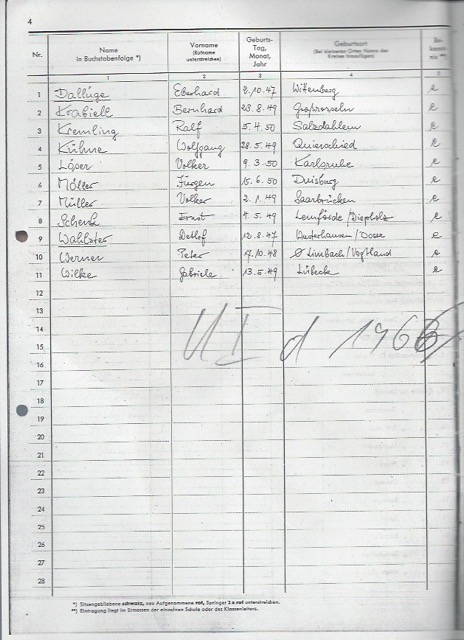 4
Nr. Name in Buchstabenfolge *) Vorname (Rufname unterstreichen) Geburts-Tag, Monat, Jahr Geburtsort (Bei kleineren Orten Name des Kreises hinzufügen)
1 2 3 4 5
1 Dallüge Eberhard 2.10.47 Wittenberg e
2 Krabiell Bernhard 23.8.49 Großrosseln e
3 Kremling Ralf 5.4.50 Salzdahlum e
4 Kühne Wolfgang 28.5.49 Quierschied e
5 Löser Volker 9.3.50 Karlsruhe e
6 Möller Jürgen 15.6.50 Duisburg e
7 Müller Volker 2.1.49 Saarbrücken e
8 Schenk Ernst 4.5.49 Lemförde/Diepholz e
9 Wahlster Detlef 12.8.47 Wusterhausen/Dosse e
10 Werner Peter 17.10.48 Limbach/Vogtland e
11 Wilke Gabriele 13.5.49 Lübeck e
12
13
14
15 UI d 1966
16
17
18
19
20
21
22
23
24
25
26
27
28
*) Sitzengebliebene schwarz, neu Aufgenommene rot, Springer 2 x rot unterstreichen.
**) Eintragung liegt im Ermessen der einzelnen Schule oder des Klassenleiters.